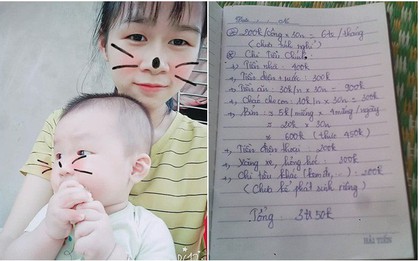 ② 200k/công x 30n = 6tr/tháng
(chưa tính nghỉ)
② Chi tiêu chính:
+, Tiền nhà: 400k
+, Tiền điện + nước: 300k
+, Tiền ăn: 30k/n x 30n = 900k
+, Cháo cho em: 10k/n x 30n = 300k
+, Bỉm: = 5k/miếng x 4 miếng/ngày
= 20k x 30n
= 600k (thực 450k)
+, Tiền điện thoại: 200k
+, Xăng xe, hỏng hóc: 300k
+, Chi tiêu khác = 200k
(Chưa kể phát sinh riêng)
Tổng: 3tr50k
HẢI TIẾN